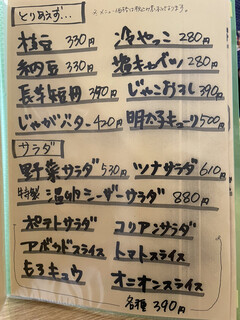 とりあえず…
枝豆 330円 冷やっこ 280円
納豆 330円 塩キャベツ 280円
長芋短冊 390円 じゃこおろし 390円
じゃがバター 420円 明太子キューリ 500円
サラダ
野菜サラダ 530円 ツナサラダ 610円
特製 温卵シーザーサラダ 880円
ポテトサラダ コリアンサラダ
アボカドスライス トマトスライス
もろキュウ オニオンスライス
各種 390円